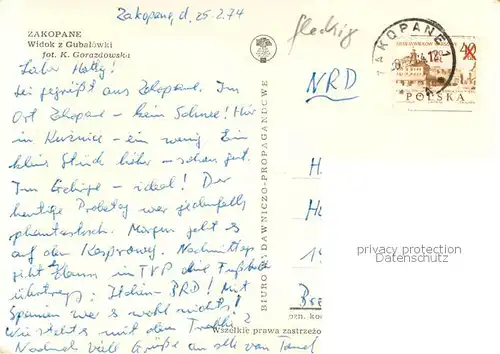 Zakopane, d. 25.2.74
ZAKOPANE
Widok z Gubałówki
fot. K. Gorazdowska
fleckig
NRD
ZAKOPANE 1
40
POLSKA
BIURO WYDAWNICZO-PROPAGANDOWE
Lieber Hotty!
Sei gegrüßt aus Zakopane. Im
Ort Zakopane – kein Schnee! Hier
in Kuźnice – ein wenig. Ein
kleines Stück höher – schon gut.
Im Gebirge – ideal! Der
heutige Probetag war jedenfalls
phantastisch. Morgen geht es
auf den Kasprowy. Nachmittag
gibt dann in TVP die Fußball
übertrag.: Italien – BRD! Mit
Spanien war's wohl nichts!
Wie steht's mit dem
Nochmal viele Grüße an alle von
privacy protection
watermark
ozn. kod
Wszelkie prawa zastrzeżo